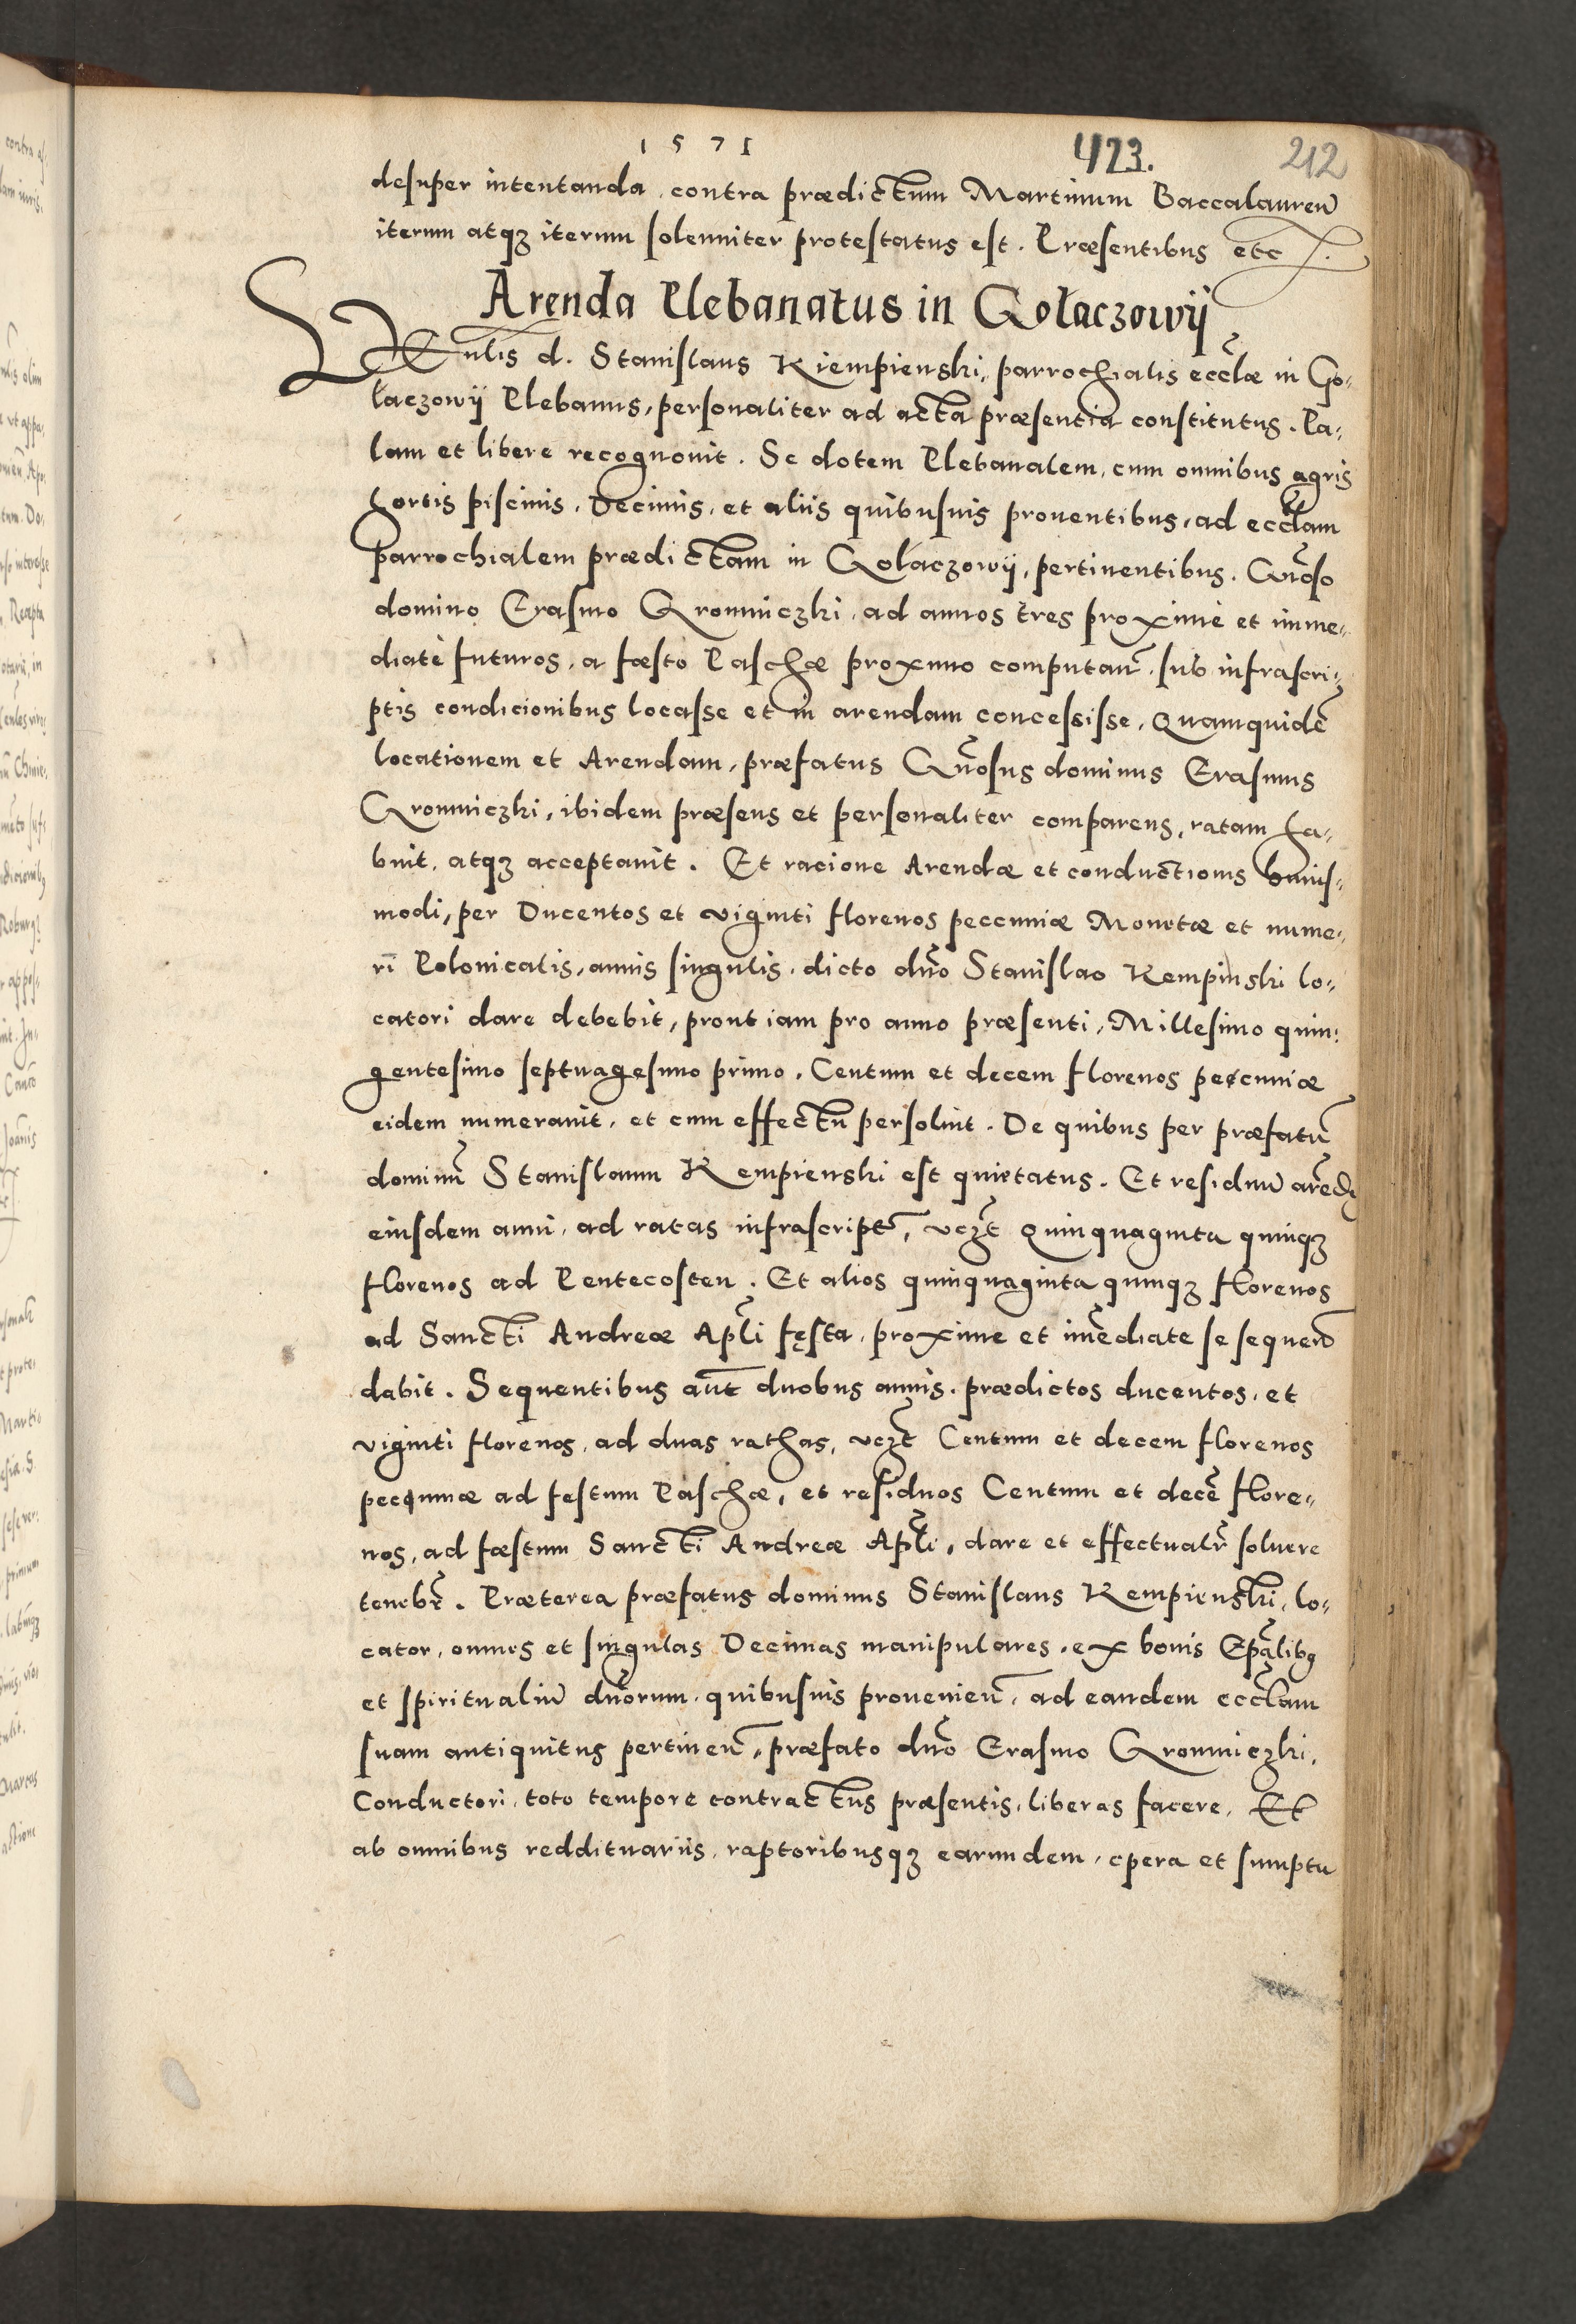 1571 423. 212
desuper intentanda, contra prædictum Martinum Baccalaureũ
iterum atqꝫ iterum solenniter protestatus est. Præsentibus etc
Arenda Plebanatus in Gołaczowÿ
VEnlis d. Stanislaus Kiempienski, parrochialis ecclæ in Go-
łaczowÿ Plebanus, personaliter ad acta præsentia constitutus. Pa-
lam et libere recognouit. Se dotem Plebanalem, cum omnibus agris
hortis piscinis, Decimis, et aliis quibusuis prouentibus, ad eccl̃am
parrochialem prædictam in Gołaczowÿ, pertinentibus. Gñoso
domino Erasmo Gromniczki, ad annos tres proximè et imme-
diatè futuros, a fæsto Paschæ proximo computañ, sub infrascri-
ptis condicionibus locasse et in arendam concessisse. Quamquidẽ
locationem et Arendam, præfatus Gñosus dominus Erasmus
Gromniczki, ibidem præsens et personaliter comparens, ratam ha-
buit, atqꝫ acceptauit. Et racione Arendæ et conductionis huius-
modi, per Ducentos et viginti florenos peccuniæ Monetæ et nume-
ri Polonicalis, annis singulis, dicto dño Stanislao Kempinski lo-
catori dare debebit, prout iam pro anno præsenti, Millesimo quin-
gentesimo septuagesimo primo. Centum et decem florenos peccuniæ
eidem numerauit, et cum effectu persoluit. De quibus per præfatũ
dominũ Stanislaum Kempienski est quietatus. Et residuũ arẽdę
eiusdem anni, ad ratas infrascript̃, vczt̃ Quinquaginta quinqꝫ
florenos ad Pentecosten. Et alios quinquaginta quinqꝫ florenos
ad Sancti Andreæ Apl̃i fęsta, proxime et im̃ediate se sequeñ
dabit. Sequentibus aũt duobus annis, prædictos ducentos, et
viginti florenos, ad duas rathas, vczt̃ Centum et decem florenos
pecquniæ ad festum Paschæ, et residuos Centum et decẽ flore-
nos, ad fæstum Sancti Andreæ Apl̃i, dare et effectualr̃ soluere
tenebr̃. Præterea præfatus dominus Stanislaus Kempienski, lo-
cator, omnes et singulas Decimas manipulares, ex bonis Ep̃alibꝯ
et spiritualiũ dñorum, quibusuis prouenieñ, ad eandem eccl̃am
suam antiquitus pertineñ, præfato dño Erasmo Gromniczki,
Conductori, toto tempore contractus præsentis, liberas facere. Et
ab omnibus reddituariis, raptoribusqꝫ earundem, opera et sumptu